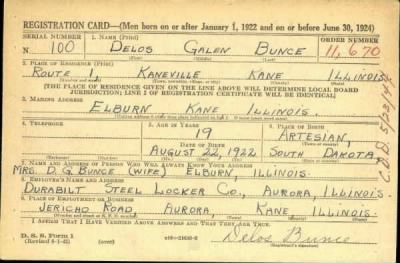 REGISTRATION CARD—(Men born on or after January 1, 1922 and on or before June 30, 1924)
SERIAL NUMBER 1. NAME (Print) ORDER NUMBER
N 100 DELOS GALEN BUNCE 11,670
(First) (Middle) (Last)
2. PLACE OF RESIDENCE (Print)
ROUTE 1, KANEVILLE KANE ILLINOIS
[THE PLACE OF RESIDENCE GIVEN ON THE LINE ABOVE WILL DETERMINE LOCAL BOARD
JURISDICTION; LINE 2 OF REGISTRATION CERTIFICATE WILL BE IDENTICAL]
3. MAILING ADDRESS
ELBURN KANE ILLINOIS.
4. TELEPHONE 5. AGE IN YEARS 6. PLACE OF BIRTH
19 ARTESIAN,
DATE OF BIRTH
AUGUST 22, 1922 SOUTH DAKOTA,
7. NAME AND ADDRESS OF PERSON WHO WILL ALWAYS KNOW YOUR ADDRESS
MRS. D. G. BUNCE (WIFE) ELBURN, ILLINOIS.
8. EMPLOYER'S NAME AND ADDRESS
DURABILT STEEL LOCKER CO., AURORA, ILLINOIS.
9. PLACE OF EMPLOYMENT OR BUSINESS
JERICHO ROAD, AURORA, KANE ILLINOIS.
I AFFIRM THAT I HAVE VERIFIED ABOVE ANSWERS AND THAT THEY ARE TRUE.
D. S. S. Form 1
Delos Bunce